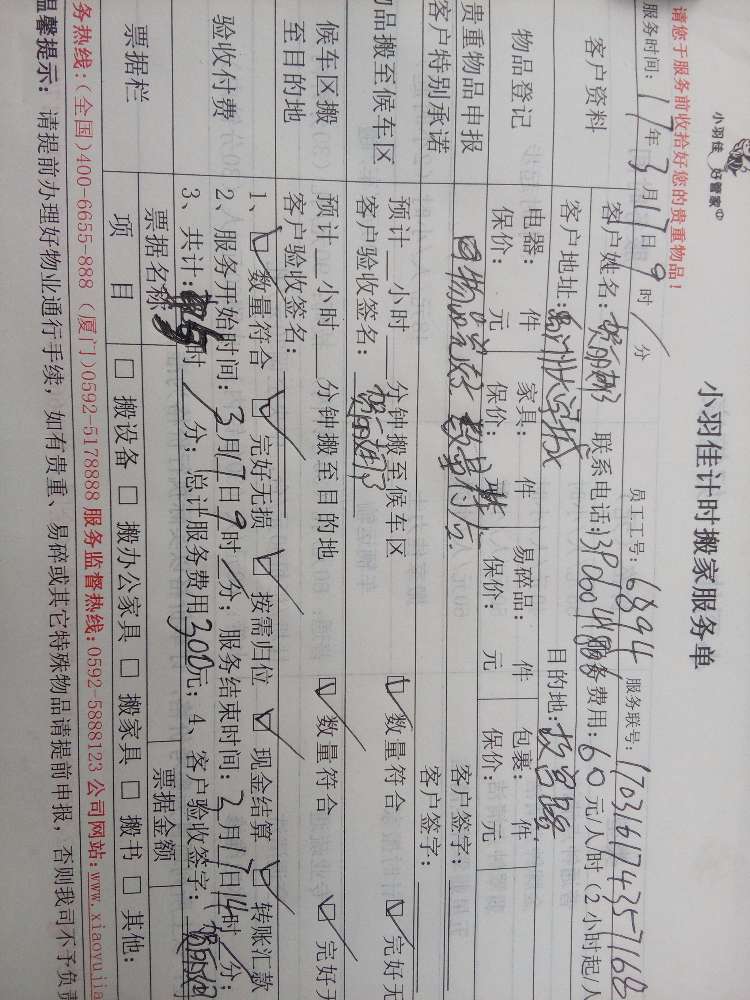 小羽佳 好管家
小羽佳计时搬家服务单
请您于服务前收拾好您的贵重物品!
服务时间: 17年3月17日9时/分 员工工号: 6894 服务联号: 170316174357168
客户资料 客户姓名: 联系电话: 服务费用: 60元/人/时(2小时起/人
客户地址: 目的地:
物品登记 电器: 件 家具: 件 易碎品: 件 包裹: 件
保价: 元 保价: 元 保价: 元 保价: 元
贵重物品申报 客户签字:
客户特别承诺 客户签字:
物品搬至候车区 预计__小时__分钟搬至候车区 数量符合 完好无
客户验收签名:
候车区搬 预计__小时__分钟搬至目的地 数量符合 完好无
至目的地 客户验收签名:
验收付费 1、 数量符合 完好无损 按需归位 现金结算 转账汇款
2、服务开始时间: 3月17日9时/分; 服务结束时间: 3月17日14时/分;
3、共计: 时/分; 总计服务费用300元; 4、客户验收签字:
票据栏 票据名称 票据金额
项 目 □ 搬设备 □ 搬办公家具 □ 搬家具 □ 搬书 □ 其他:
务热线:(全国)400-6655-888 (厦门)0592-5178888 服务监督热线:0592-5888123 公司网站:www.xiaoyujia
温馨提示: 请提前办理好物业通行手续, 如有贵重、易碎或其它特殊物品请提前申报, 否则我司不予负责